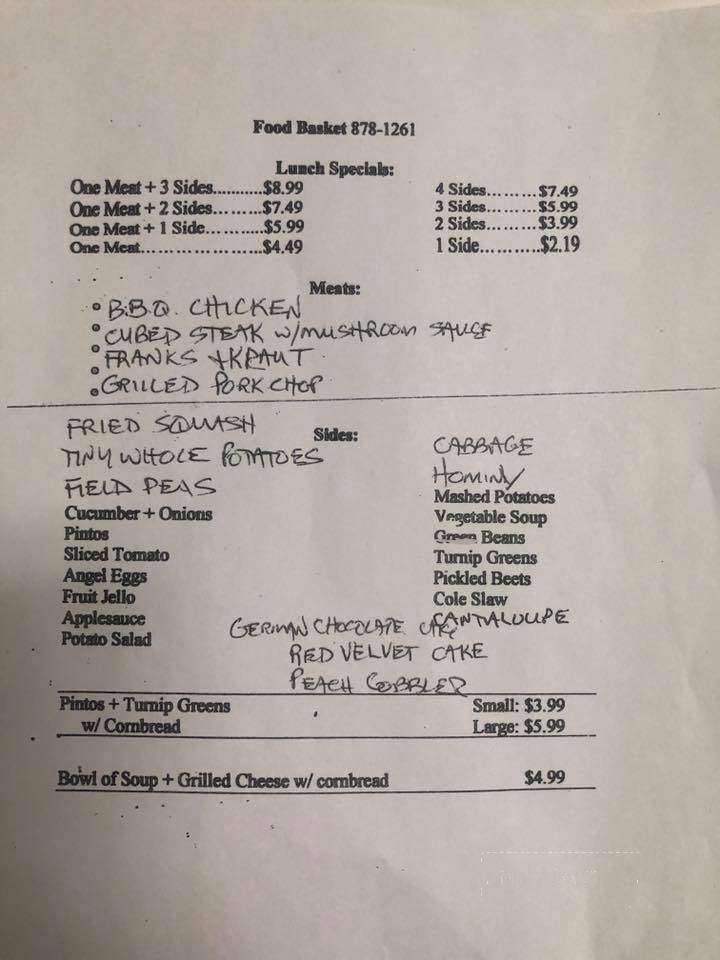 Food Basket 878-1261
Lunch Specials:
One Meat + 3 Sides..........$8.99
One Meat + 2 Sides.........$7.49
One Meat + 1 Side...........$5.99
One Meat.....................$4.49
4 Sides.........$7.49
3 Sides.........$5.99
2 Sides.........$3.99
1 Side...........$2.19
Meats:
• B.B.Q. CHICKEN
• CUBED STEAK W/MUSHROOM SAUCE
• FRANKS + KRAUT
• GRILLED PORK CHOP
Sides:
FRIED SQUASH
TINY WHOLE POTATOES
FIELD PEAS
Cucumber + Onions
Pintos
Sliced Tomato
Angel Eggs
Fruit Jello
Applesauce
Potato Salad
CABBAGE
HOMINY
Mashed Potatoes
Vegetable Soup
Green Beans
Turnip Greens
Pickled Beets
Cole Slaw
CANTALOUPE
GERMAN CHOCOLATE CAKE
RED VELVET CAKE
PEACH COBBLER
Pintos + Turnip Greens
w/ Cornbread
Small: $3.99
Large: $5.99
Bowl of Soup + Grilled Cheese w/ cornbread $4.99